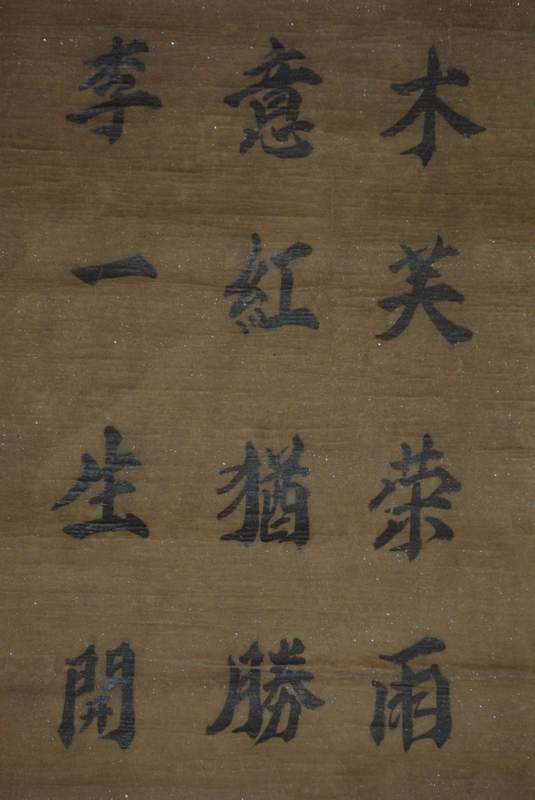 木芙荣雨
意紅猶勝
李一生開